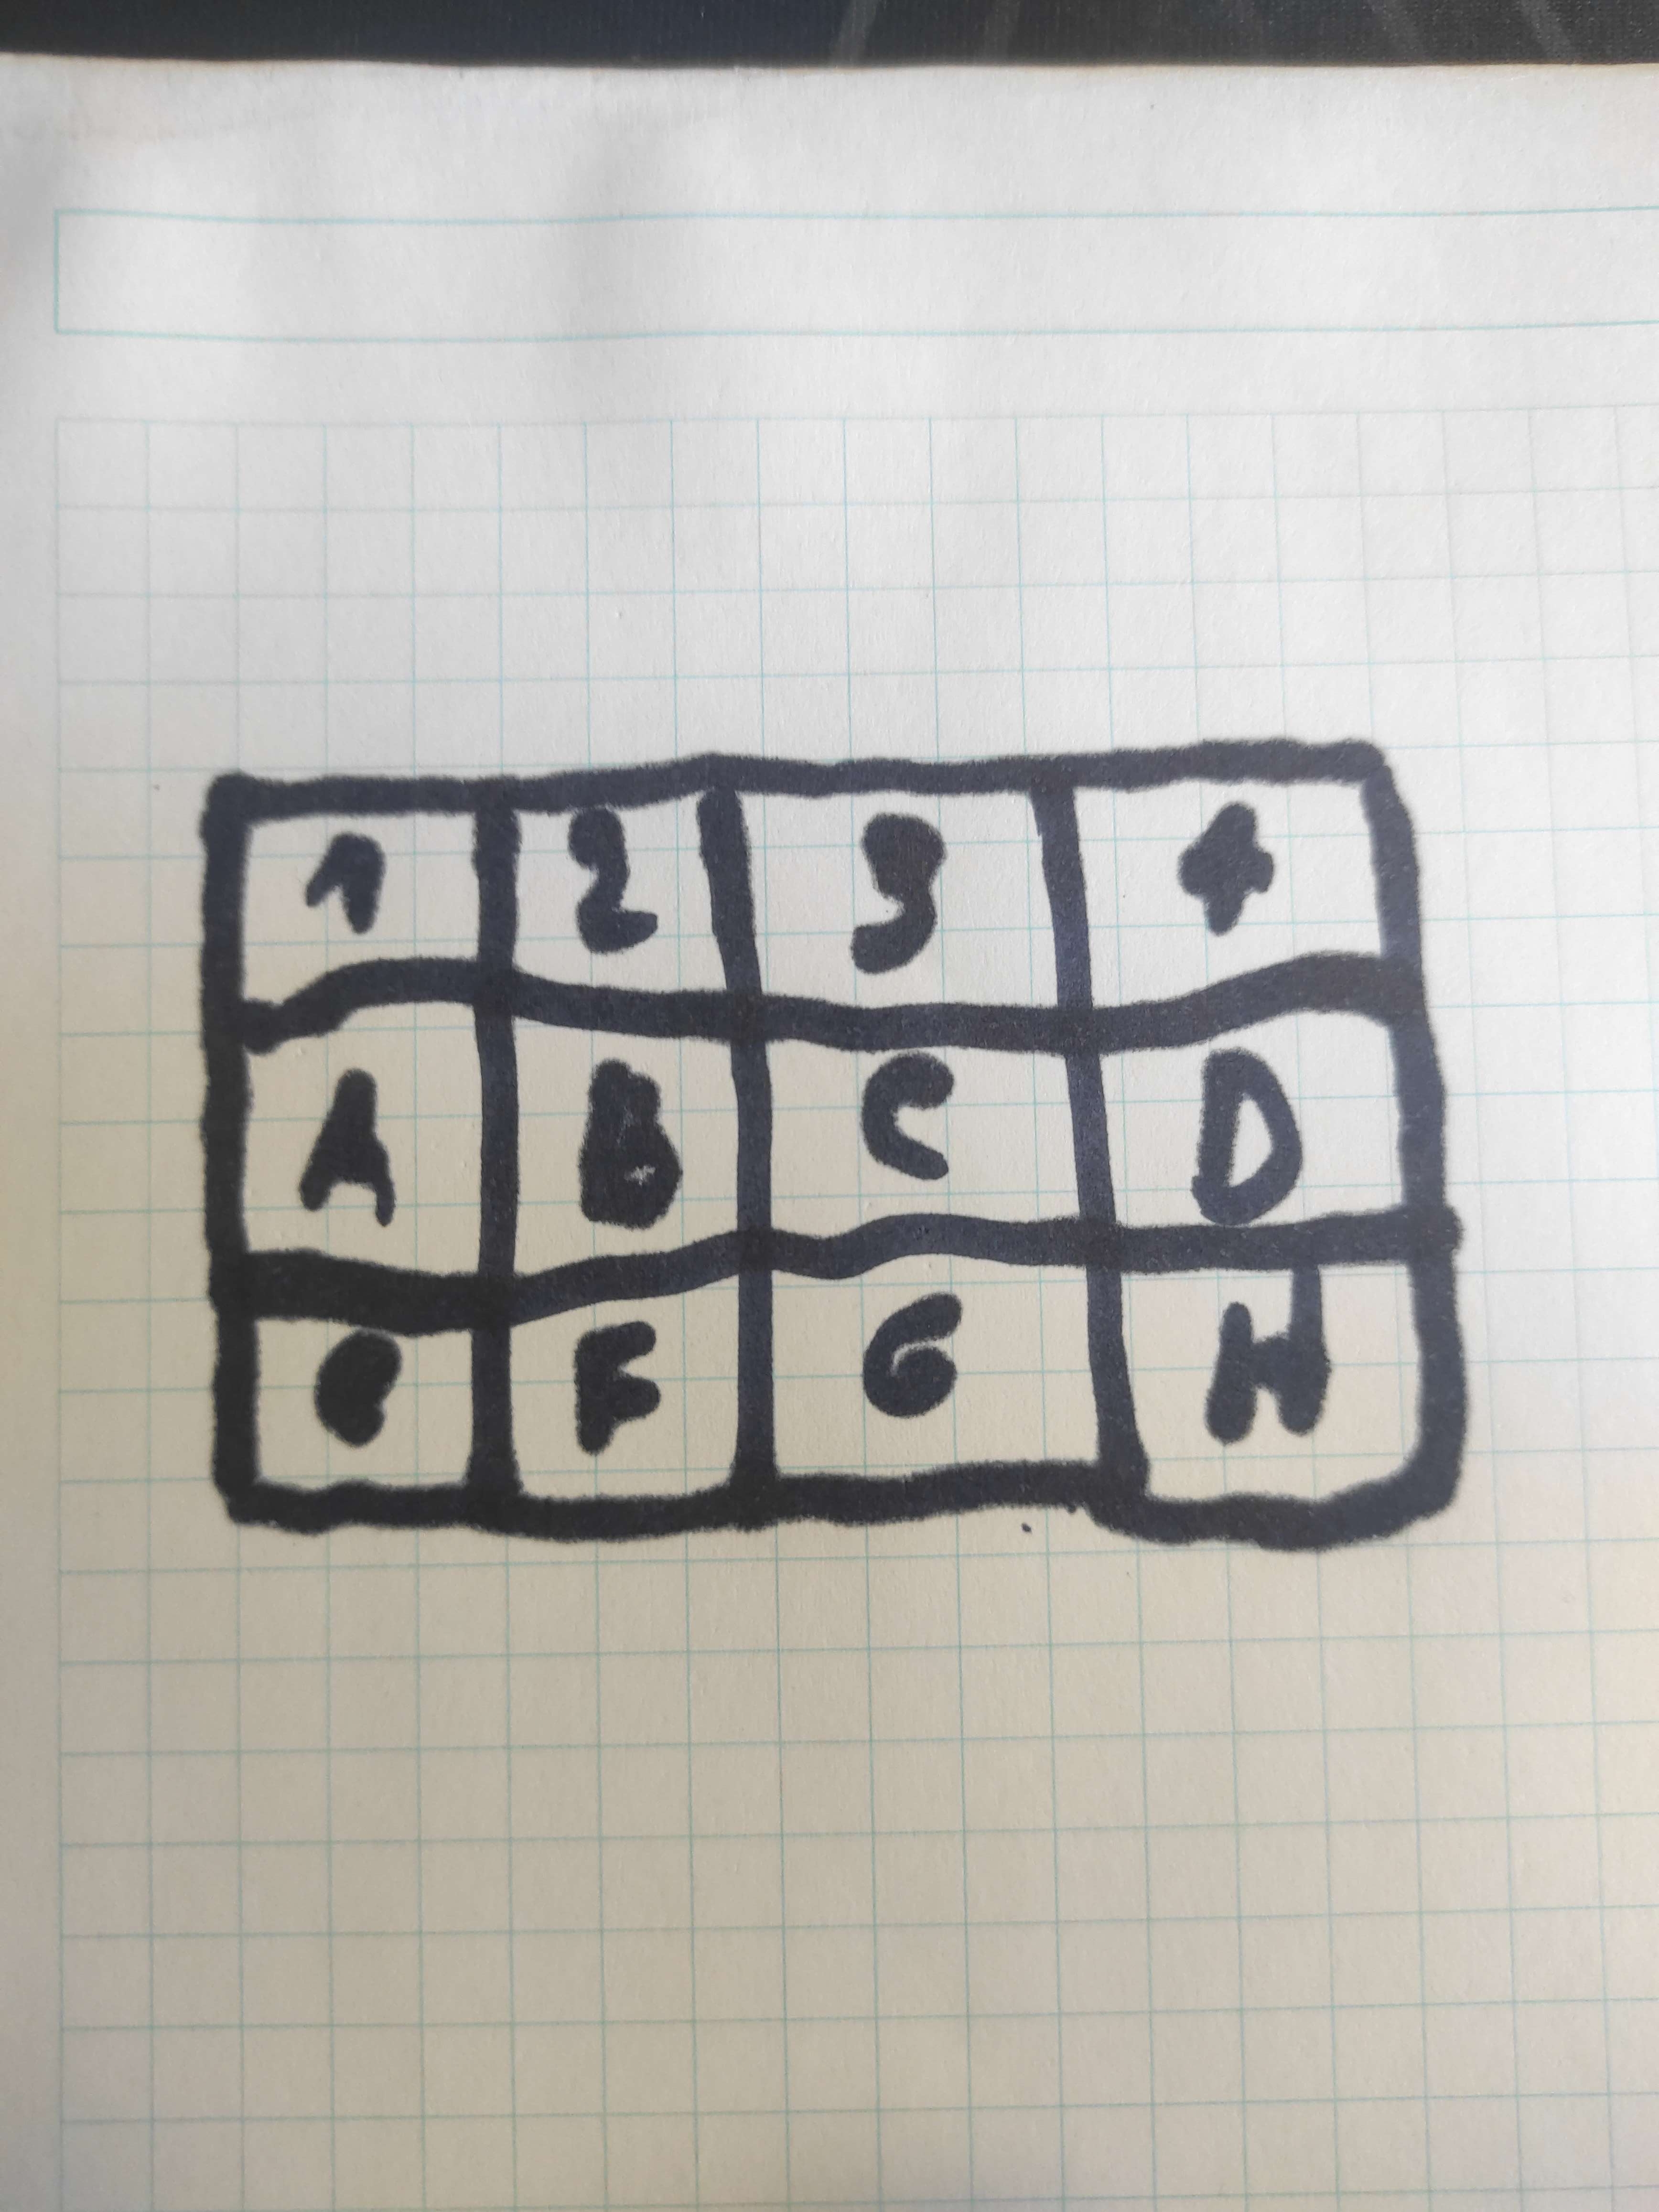 1 2 3 4
A B C D
e F G H